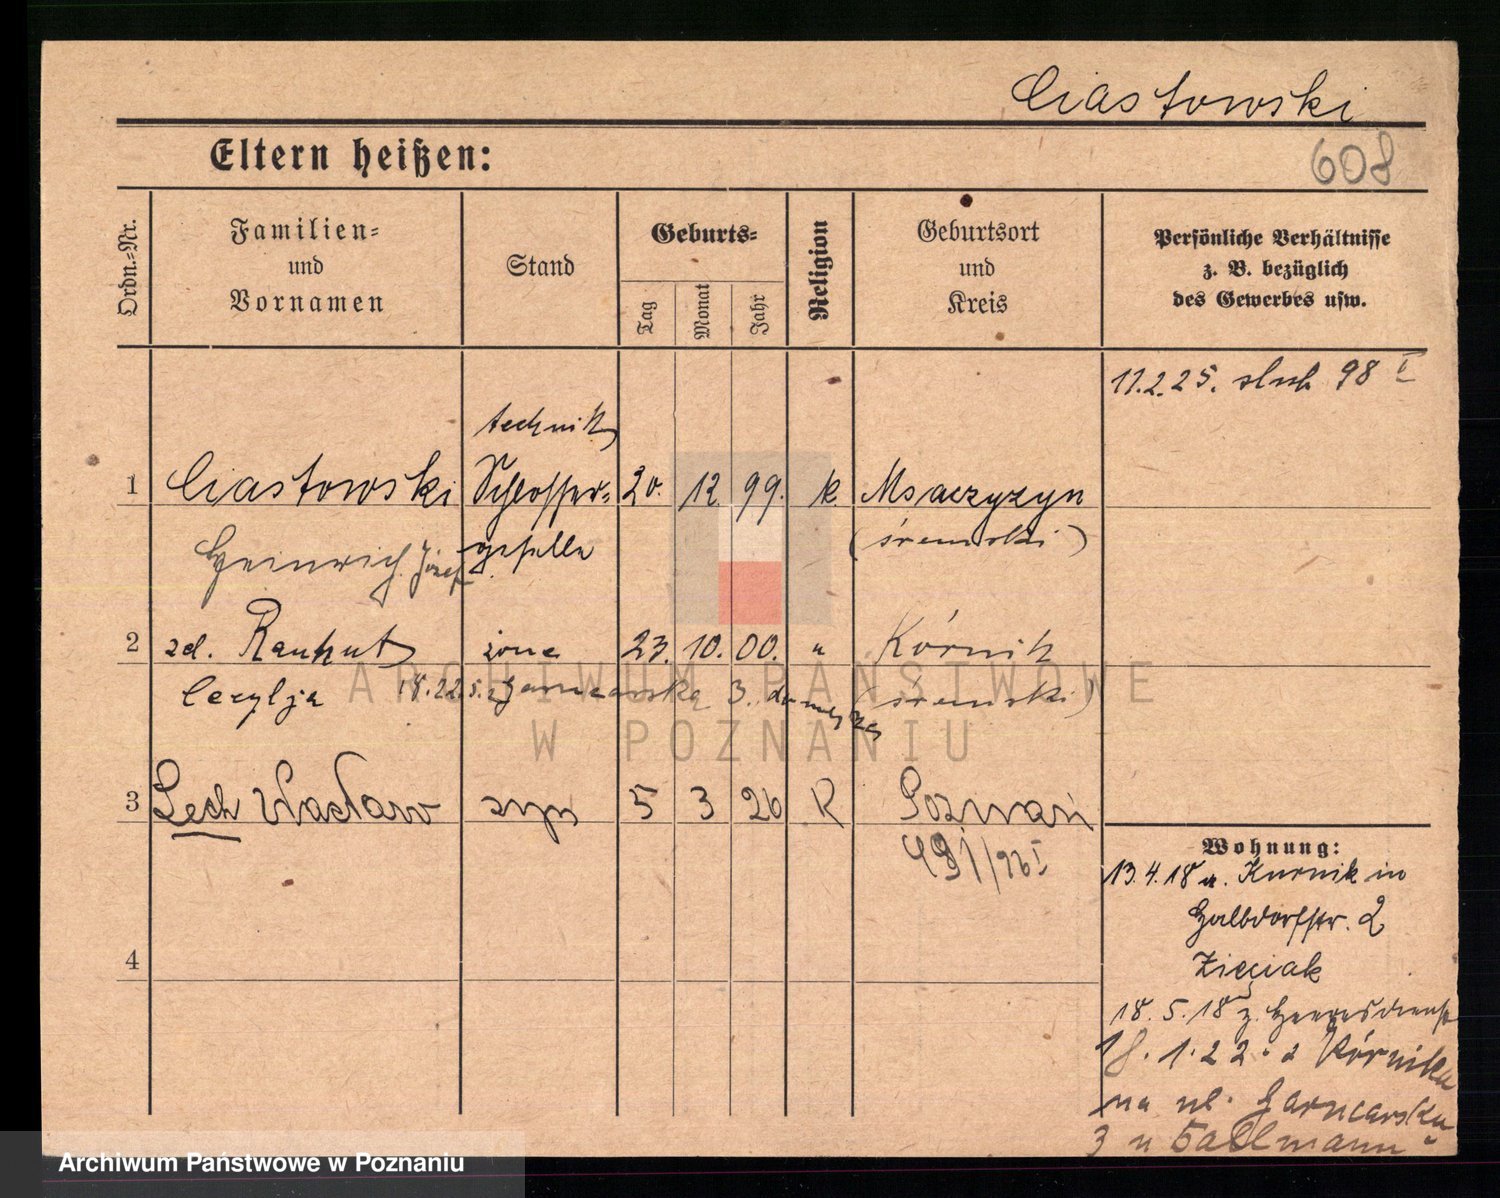 Ciastowski
Eltern heißen:
608
Ordn.-Nr.
Familien-
und
Vornamen
Stand
Geburts-
Tag
Monat
Jahr
Religion
Geburtsort
und
Kreis
Persönliche Verhältnisse
z. B. bezüglich
des Gewerbes usw.
11.2.25. ślub 98 I
technik
1 Ciastowski Schlosser- 20. 12. 99. k. Msaczyzyn
Heinrich Józef geselle (śremski)
2 zd. Rauhut żona 23. 10. 00. " Kórnik
Cecylja 18.22 Garncarska 3. do męża (śremski)
3 Lech Wacław syn 5 3 26 R Poznań
491/26 I
4
Wohnung:
13.4.18 a. Kurnik in
Halbdorfstr. 2
Zięciak
18.5.18 z. Heeresdienst
18.1.22. z Kórnika
na ul. Garncarską
3 u Tallmann
ARCHIWUM PAŃSTWOWE
W POZNANIU
Archiwum Państwowe w Poznaniu